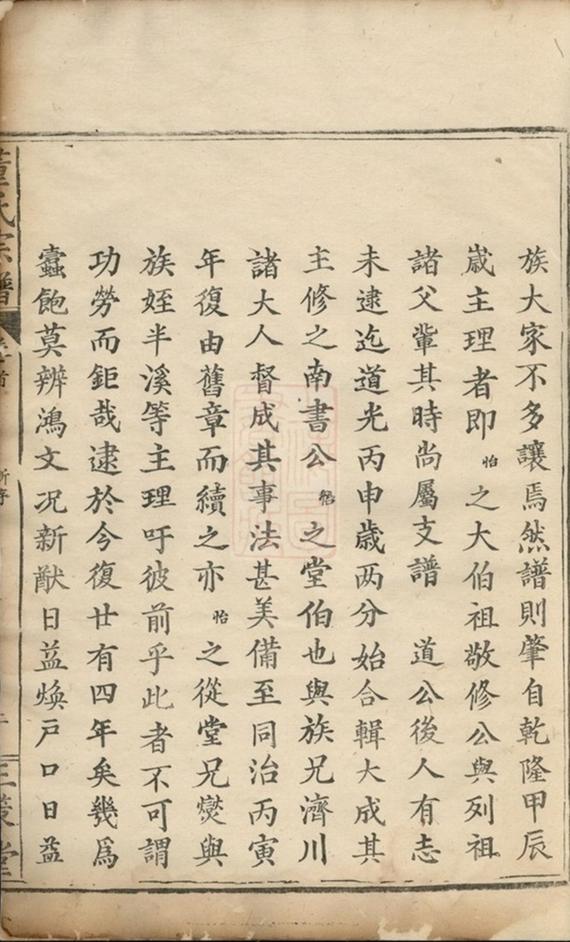 族大家不多讓焉然譜則肇自乾隆甲辰
歲主理者即怡之大伯祖敬修公與列祖
諸父輩其時尚屬支譜　道公後人有志
未逮迄道光丙申歲两分始合輯大成其
主修之南書公怡之堂伯也與族兄濟川
諸大人督成其事法甚美備至同治丙寅
年復由舊章而續之亦怡之從堂兄爕與
族姪半溪等主理吁彼前乎此者不可謂
功勞而鉅哉逮於今復廿有四年矣幾爲
蠹飽莫辨鴻文况新猷日益煥戸口日益
氏宗譜